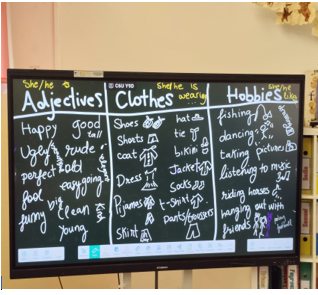 She/he is
Adjectives
Happy good
tall
Ugly rude
perfect old
easygoing
fool big
funny clean
young
she/he is
wearing
Clothes
Shoes
Shorts
coat
Dress
Pijamas
Skirt
hat
tie
bikini
Jacket
Socks
t-Shirt
pants/trousers
she/he
likes
Hobbies
fishing
dancing
taking pictures
listening to music
riding horses
hanging out with
friends